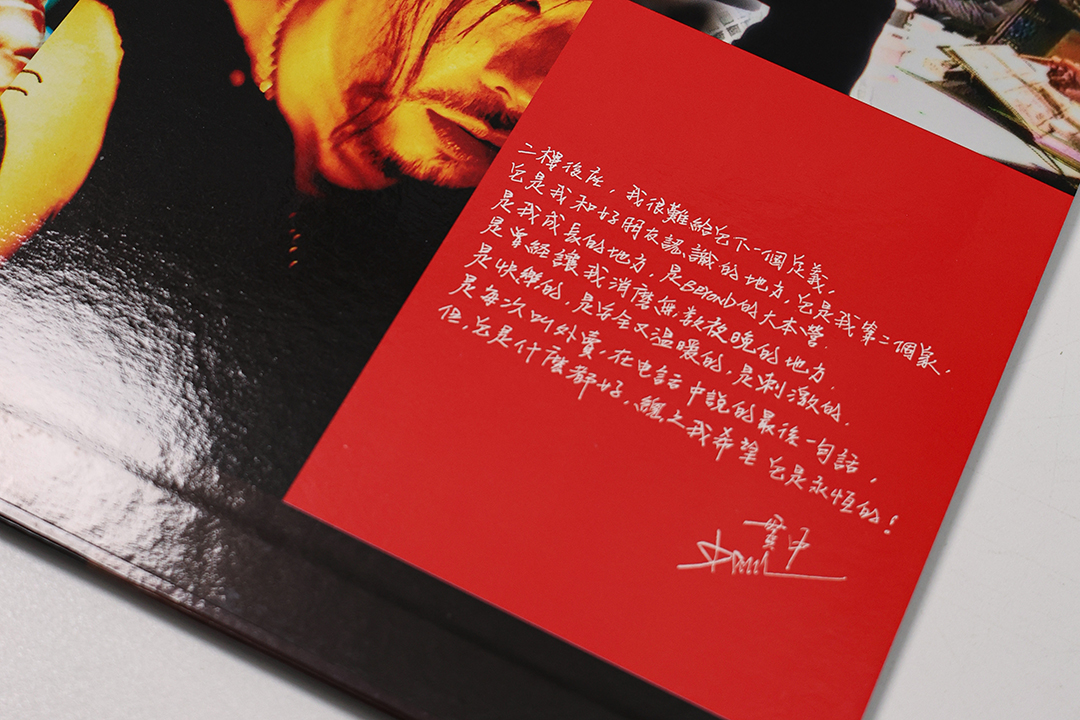 二樓後座，我很難給它下一個定義，
它是我和好朋友認識的地方，它是我第二個家，
是我成長的地方，是BEYOND的大本營．
是曾經讓我消磨無數夜晚的地方．
是快樂的，是安全又溫暖的，是刺激的．
是每次叫外賣，在电話中說的最後一句話，
但，它是什麼都好，總之我希望它是永恆的！
貫中
Paul